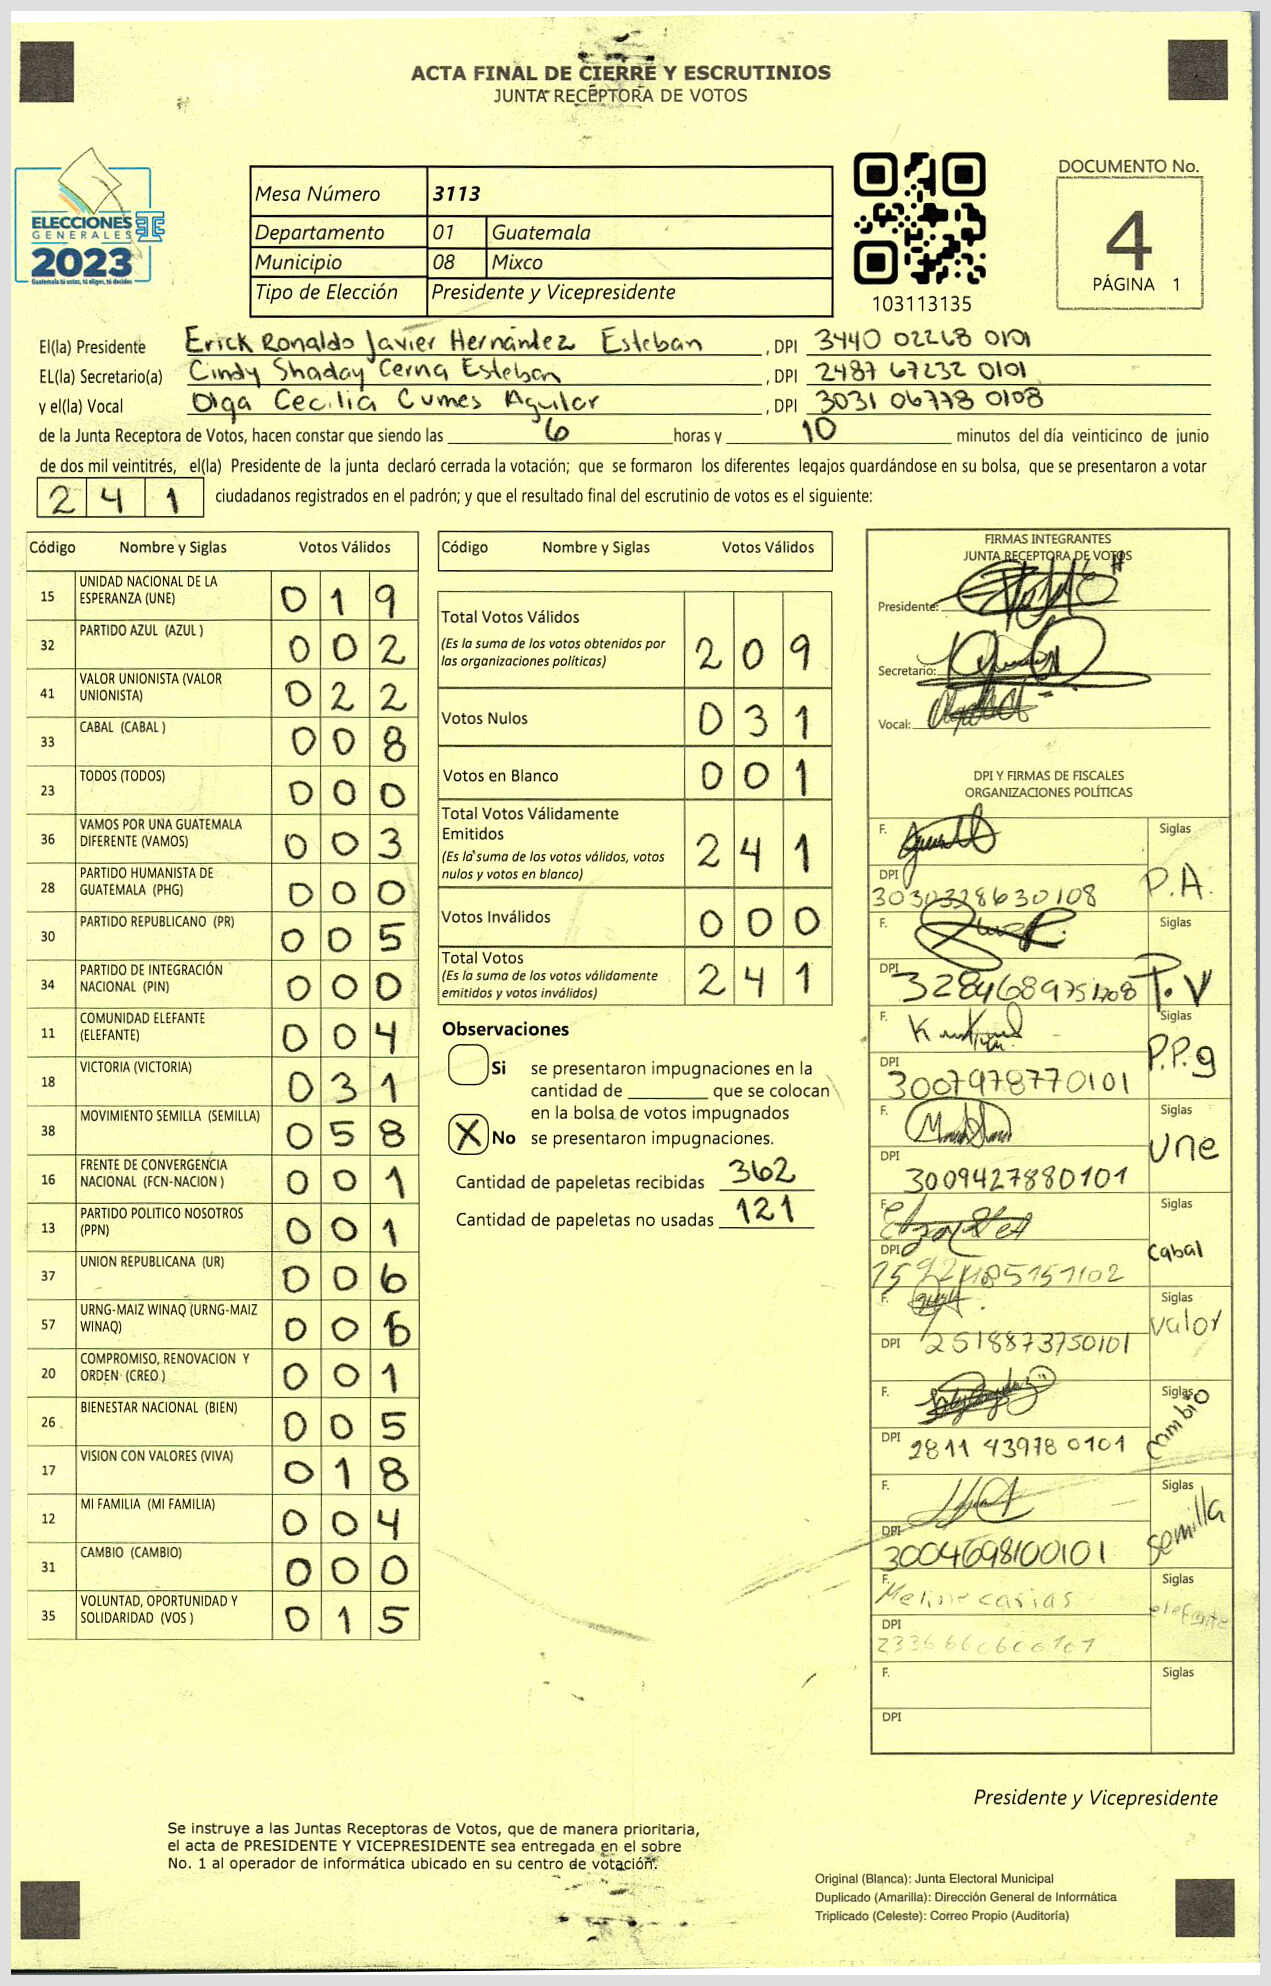 ACTA FINAL DE CIERRE Y ESCRUTINIOS
JUNTA RECEPTORA DE VOTOS
ELECCIONES
GENERALES
2023
Guatemala tú votas, tú eliges, tú decides
Mesa Número 3113
Departamento 01 Guatemala
Municipio 08 Mixco
Tipo de Elección Presidente y Vicepresidente
103113135
DOCUMENTO No.
4
PÁGINA 1
El(la) Presidente Erick Ronaldo Javier Hernández Esteban , DPI 3440 02268 0101
EL(la) Secretario(a) Cindy Shaday Cerna Esteban , DPI 2487 67232 0101
y el(la) Vocal Olga Cecilia Cumes Aguilar , DPI 3031 06778 0108
de la Junta Receptora de Votos, hacen constar que siendo las 6 horas y 10 minutos del día veinticinco de junio
de dos mil veintitrés, el(la) Presidente de la junta declaró cerrada la votación; que se formaron los diferentes legajos quardándose en su bolsa, que se presentaron a votar
241 ciudadanos registrados en el padrón; y que el resultado final del escrutinio de votos es el siguiente:
Código Nombre y Siglas Votos Válidos
15 UNIDAD NACIONAL DE LA ESPERANZA (UNE) 019
32 PARTIDO AZUL (AZUL ) 002
41 VALOR UNIONISTA (VALOR UNIONISTA) 022
33 CABAL (CABAL ) 008
23 TODOS (TODOS) 000
36 VAMOS POR UNA GUATEMALA DIFERENTE (VAMOS) 003
28 PARTIDO HUMANISTA DE GUATEMALA (PHG) 000
30 PARTIDO REPUBLICANO (PR) 005
34 PARTIDO DE INTEGRACIÓN NACIONAL (PIN) 000
11 COMUNIDAD ELEFANTE (ELEFANTE) 004
18 VICTORIA (VICTORIA) 031
38 MOVIMIENTO SEMILLA (SEMILLA) 058
16 FRENTE DE CONVERGENCIA NACIONAL (FCN-NACION ) 001
13 PARTIDO POLITICO NOSOTROS (PPN) 001
37 UNION REPUBLICANA (UR) 006
57 URNG-MAIZ WINAQ (URNG-MAIZ WINAQ) 006
20 COMPROMISO, RENOVACION Y ORDEN (CREO ) 001
26 BIENESTAR NACIONAL (BIEN) 005
17 VISION CON VALORES (VIVA) 018
12 MI FAMILIA (MI FAMILIA) 004
31 CAMBIO (CAMBIO) 000
35 VOLUNTAD, OPORTUNIDAD Y SOLIDARIDAD (VOS ) 015
Código Nombre y Siglas Votos Válidos
Total Votos Válidos 209
(Es la suma de los votos obtenidos por
las organizaciones políticas)
Votos Nulos 031
Votos en Blanco 001
Total Votos Válidamente
Emitidos 241
(Es la suma de los votos válidos, votos
nulos y votos en blanco)
Votos Inválidos 000
Total Votos 241
(Es la suma de los votos válidamente
emitidos y votos inválidos)
Observaciones
Si se presentaron impugnaciones en la
cantidad de ________ que se colocan
en la bolsa de votos impugnados
X No se presentaron impugnaciones.
Cantidad de papeletas recibidas 362
Cantidad de papeletas no usadas 121
FIRMAS INTEGRANTES
JUNTA RECEPTORA DE VOTOS
Presidente:
Secretario:
Vocal:
DPI Y FIRMAS DE FISCALES
ORGANIZACIONES POLÍTICAS
F. Siglas
DPI 3030328630108 P.A.
F. Siglas
DPI P.V
F. Siglas
DPI 3007978770101 P.P.g
F. Siglas
DPI 3009427880101 une
F. Siglas
DPI cabal
F. Siglas
DPI 2518873750101 valor
F. Siglas
DPI 2811 43978 0101 cambio
F. Siglas
DPI 3004698100101 semilla
F. Meline carias Siglas
DPI elefante
F. Siglas
DPI
Presidente y Vicepresidente
Se instruye a las Juntas Receptoras de Votos, que de manera prioritaria,
el acta de PRESIDENTE Y VICEPRESIDENTE sea entregada en el sobre
No. 1 al operador de informática ubicado en su centro de votación.
Original (Blanca): Junta Electoral Municipal
Duplicado (Amarilla): Dirección General de Informática
Triplicado (Celeste): Correo Propio (Auditoría)